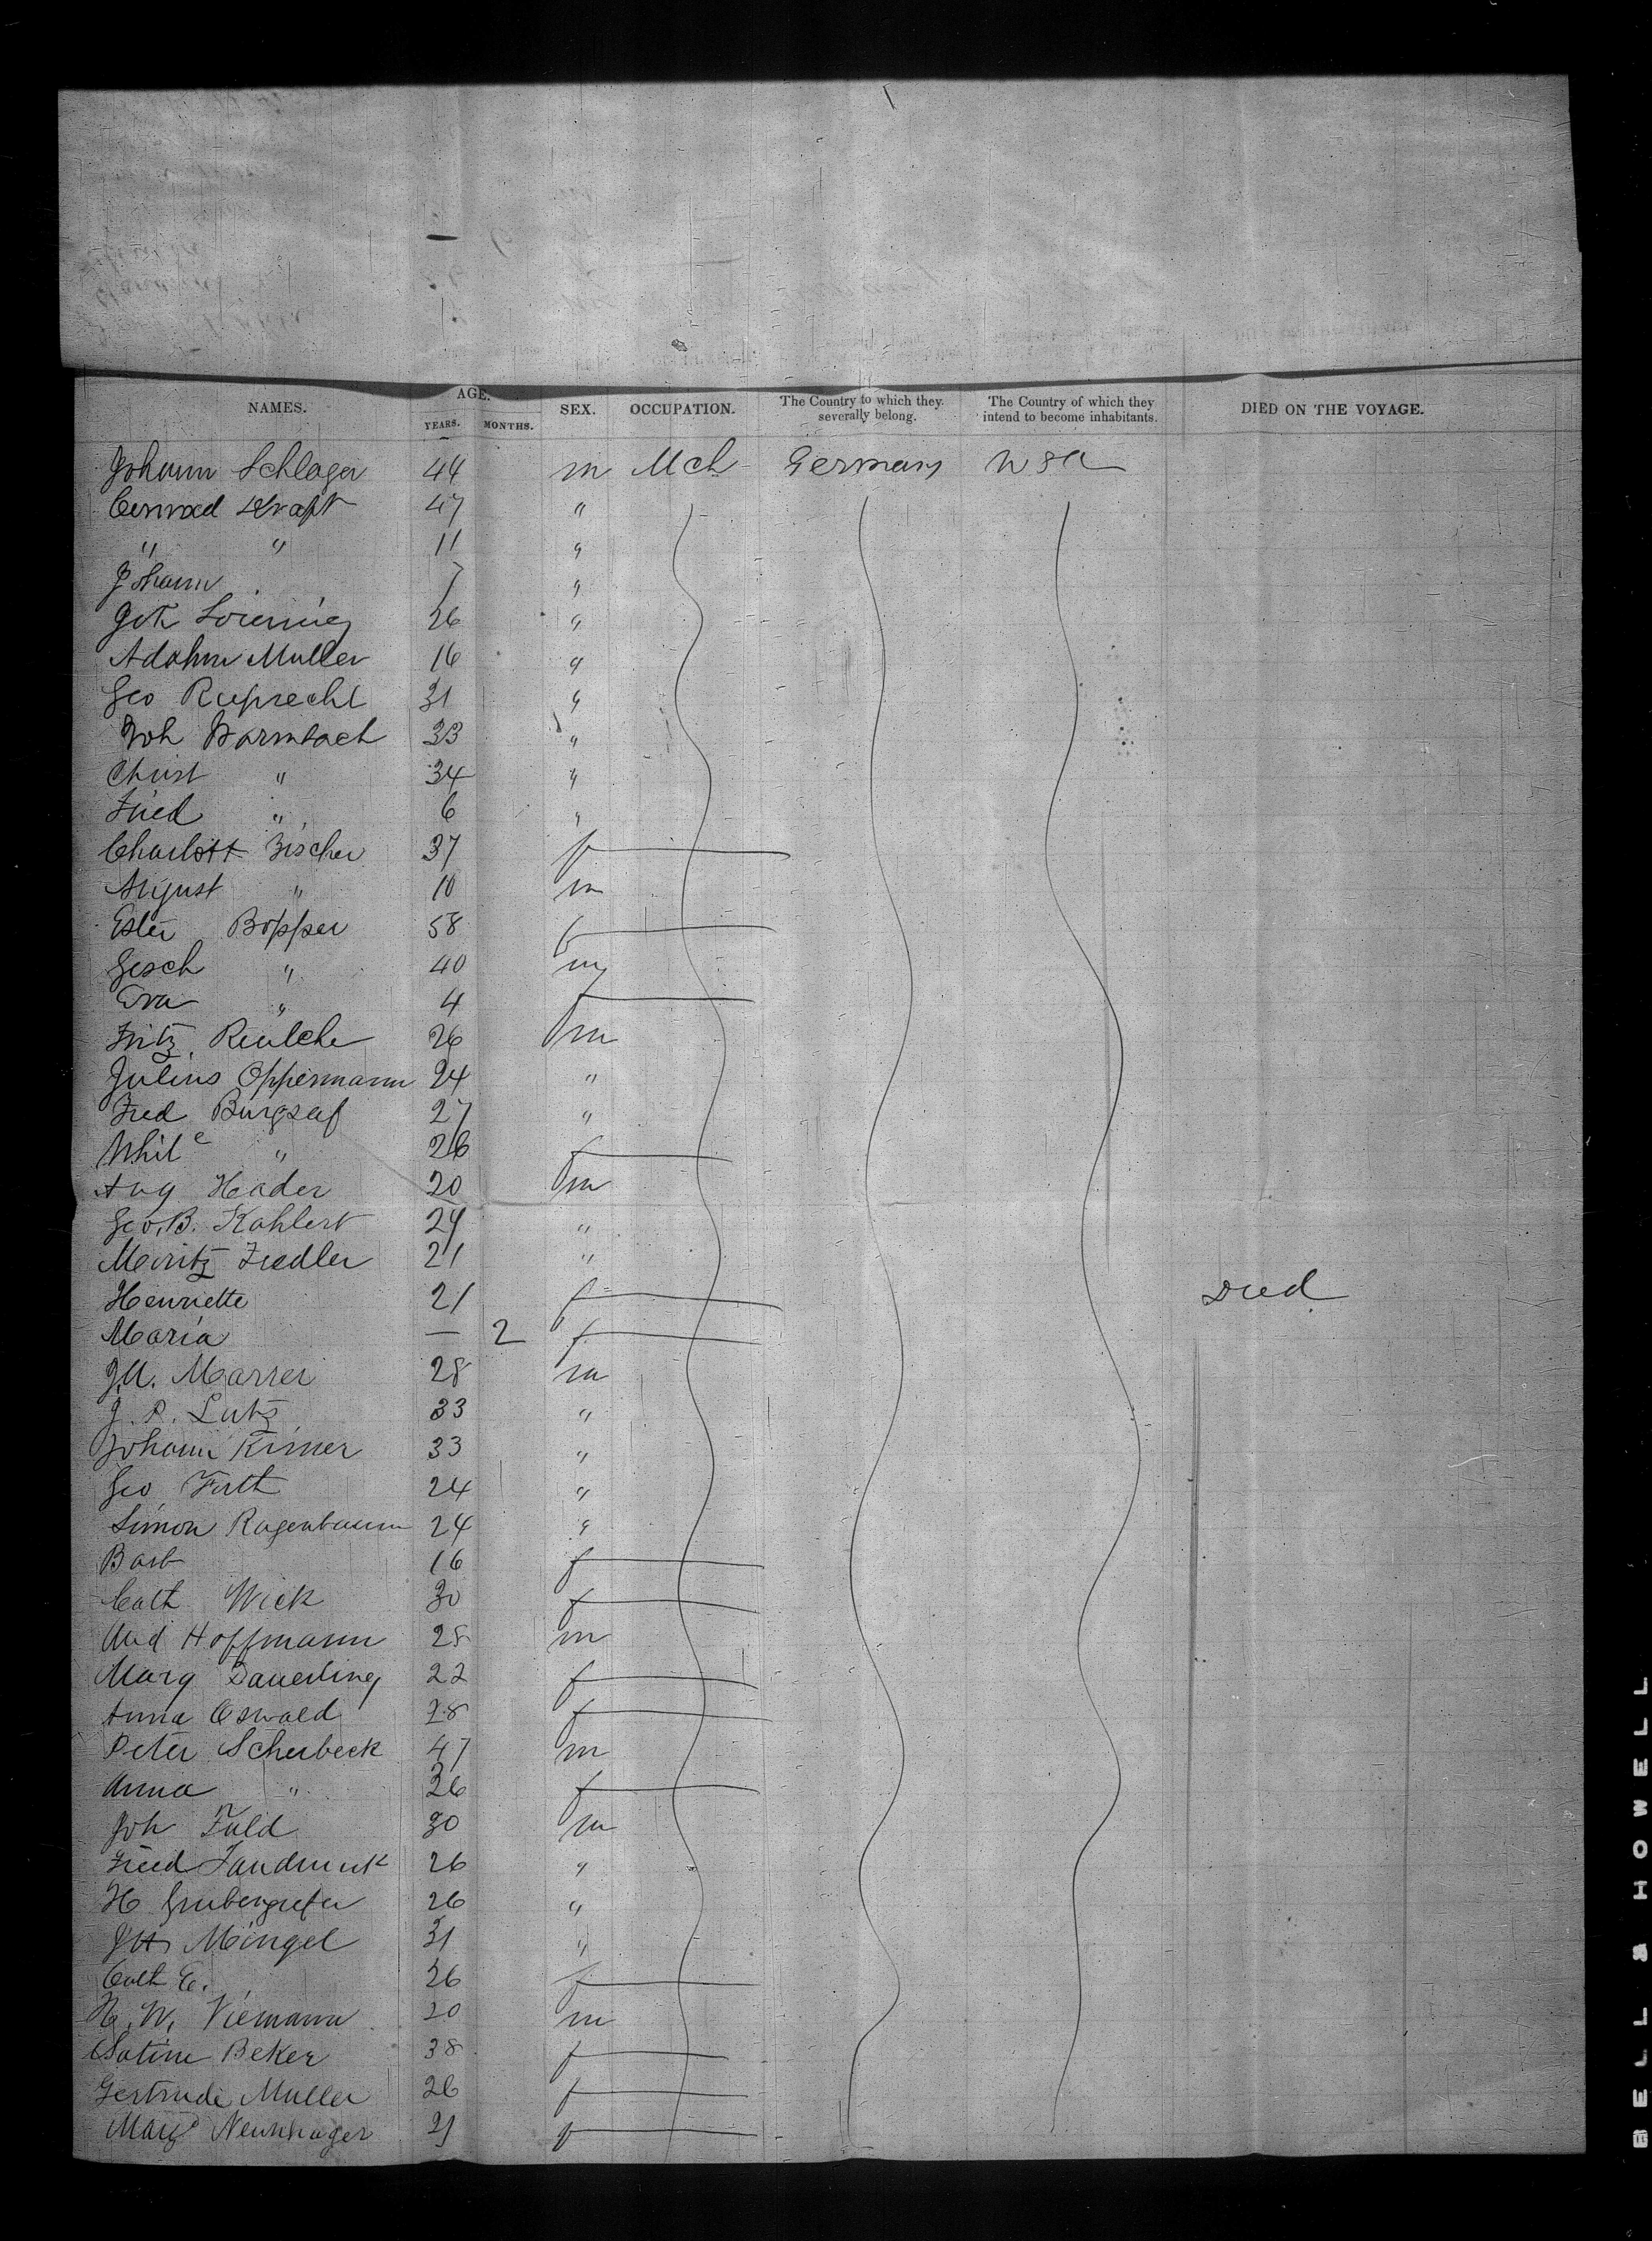 NAMES. AGE. YEARS. MONTHS. SEX. OCCUPATION. The Country to which they severally belong. The Country of which they intend to become inhabitants. DIED ON THE VOYAGE.
Johann Schlager 44 m Mch Germany USA
Conrad Kraft 47 "
" " 11 "
Johann 7 "
26 "
Muller 16 "
Geo Ruprecht 31 "
Joh Barmbach 33 "
Christ " 34 "
Fried " 6 "
Charlott Fischer 37 f
August " 10 m
Ester Bopper 58 f
Gesch " 40 m
Eva " 4 f
Fritz 26 m
Julius Oppermann 24 "
Fred 27 "
" 26 f
Aug Hader 20 m
Geo. B. Kahlert "
Moritz Fiedler 21 "
Henriette 21 f Died
Maria — 2 f
28 m
J. P. Lutz 33 "
Johann 33 "
Geo 24 "
Simon 24 "
Barb 16 f
Cath Wick 30 f
Hoffmann 28 m
Marg Dauerling 22 f
Anna Oswald 28 f
Peter Scherbeck 47 m
Anna " 26 f
Joh Fuld 30 m
Fried 26 "
H 26 "
Mengel 31 "
Cath E. 26 f
H. W. Viemann 20 m
Beker 38 f
Gertrude Muller 26 f
Marg 21 f
BELL & HOWELL